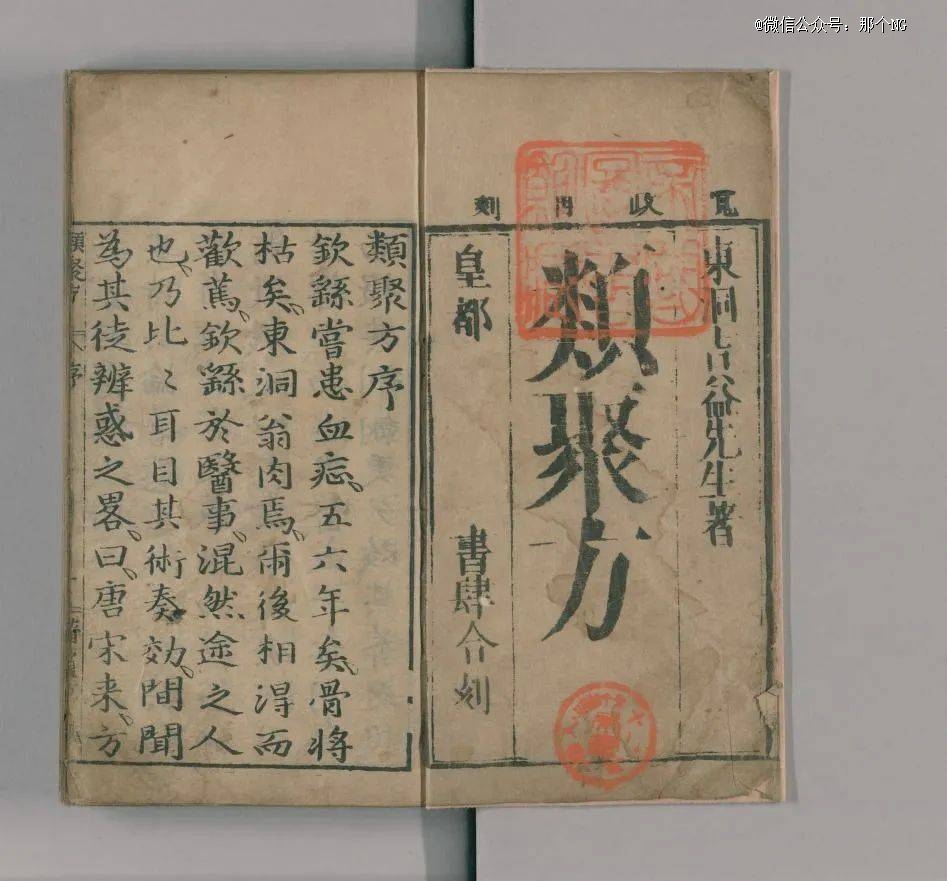 @微信公众号：那个NG
寬政四刻
東洞吉益先生著
類聚方
皇都 書肆合刻
類聚方序
欽繇嘗患血疝五六年矣骨將
枯矣東洞翁肉焉爾後相得而
歡蔦欽繇於醫事混然途之人
也乃比〻耳目其術奏効間聞
為其徒辨惑之畧曰唐宋来方
類聚方 序